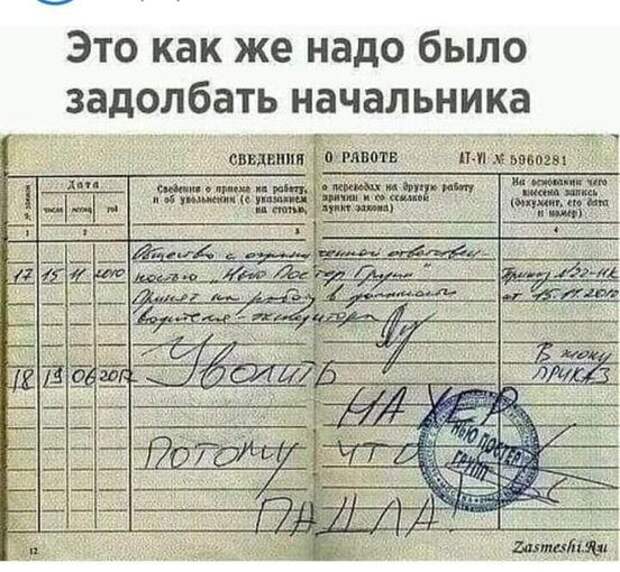 Это как же надо было
задолбать начальника
СВЕДЕНИЯ О РАБОТЕ
АТ-VI № 5960281
№ записи
Дата
Сведения о приеме на работу, о переводах на другую работу
и об увольнении (с указанием причин и со ссылкой
на статью, пункт закона)
На основании чего
внесена запись
(документ, его дата
и номер)
число месяц год
1 2 3 4
Общество с ограниченной ответствен-
17 15 11 2010 ностью „Нью Постер Групп" Приказ №22-НК
Принят на работу в должности от 15.11.2010
водителя-экспедитора
В жопу
18 19 06 2012 Уволить ПРИКАЗ
НАХЕР
ПОТОМУ ЧТО
НЬЮ ПОСТЕР
ГРУПП
ПАДЛА!
12
Zasmeshi.Ru